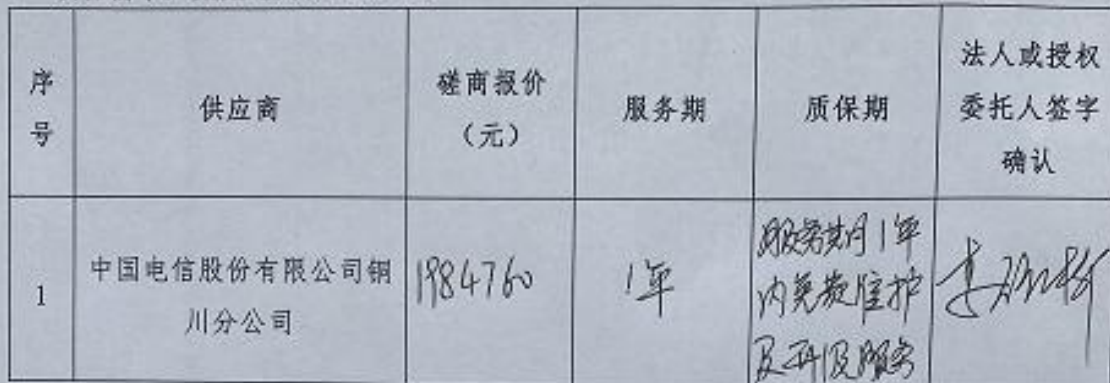 序号
供应商
磋商报价
（元）
服务期
质保期
法人或授权
委托人签字
确认
1
中国电信股份有限公司铜
川分公司
1984760
1年
服务期1年
内免费维护
及升级服务